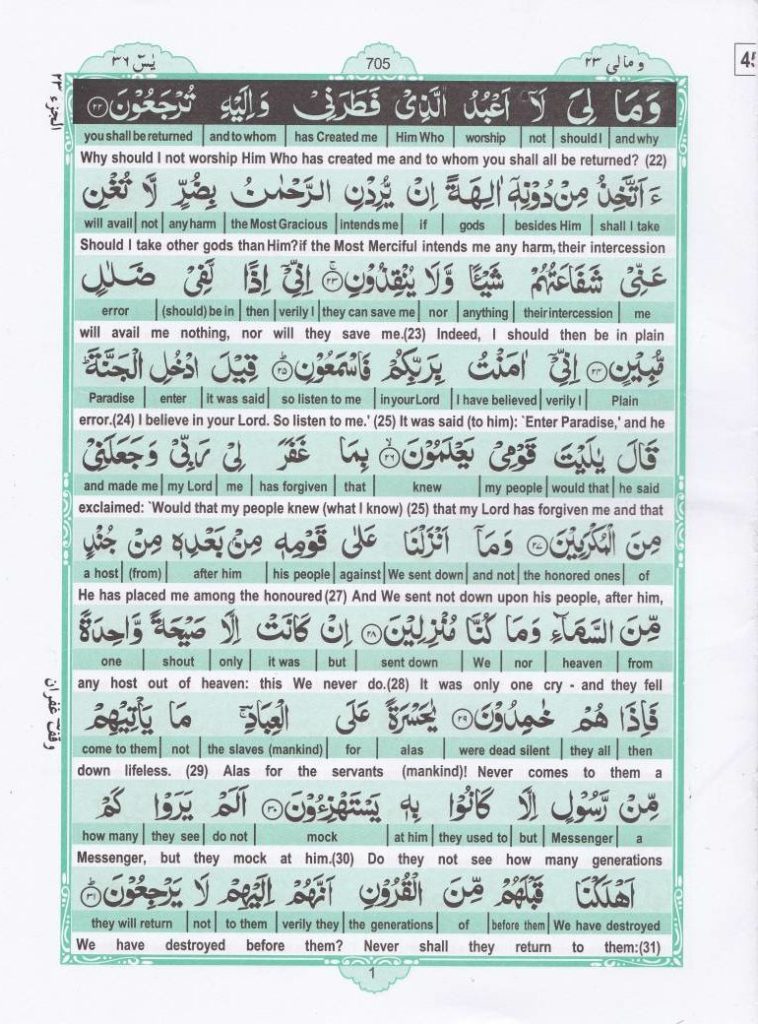 يٰسٓ ٣٦
705
ومالى ٢٣
الجزء ٢٣
وَمَا لِىَ لَآ اَعْبُدُ الَّذِىْ فَطَرَنِىْ وَاِلَيْهِ تُرْجَعُوْنَ ﴿٢٢﴾
you shall be returned | and to whom | has Created me | Him Who | worship | not | should I | and why
Why should I not worship Him Who has created me and to whom you shall all be returned? (22)
ءَاَتَّخِذُ مِنْ دُوْنِهٖٓ اٰلِهَةً اِنْ يُّرِدْنِ الرَّحْمٰنُ بِضُرٍّ لَّا تُغْنِ
will avail | not | any harm | the Most Gracious | intends me | if | gods | besides Him | shall I take
Should I take other gods than Him?if the Most Merciful intends me any harm, their intercession
عَنِّىْ شَفَاعَتُهُمْ شَيْـًٔا وَّلَا يُنْقِذُوْنِ ﴿٢٣﴾ اِنِّىْٓ اِذًا لَّفِىْ ضَلٰلٍ
error | (should) be in | then | verily I | they can save me | nor | anything | their intercession | me
will avail me nothing, nor will they save me.(23) Indeed, I should then be in plain
مُّبِيْنٍ ﴿٢٤﴾ اِنِّىْٓ اٰمَنْتُ بِرَبِّكُمْ فَاسْمَعُوْنِ ﴿٢٥﴾ قِيْلَ ادْخُلِ الْجَنَّةَ ؕ
Paradise | enter | it was said | so listen to me | in your Lord | I have believed | verily I | Plain
error.(24) I believe in your Lord. So listen to me.' (25) It was said (to him): `Enter Paradise,' and he
قَالَ يٰلَيْتَ قَوْمِىْ يَعْلَمُوْنَ ﴿٢٦﴾ بِمَا غَفَرَ لِىْ رَبِّىْ وَجَعَلَنِىْ
and made me | my Lord | me | has forgiven | that | knew | my people | would that | he said
exclaimed: `Would that my people knew (what I know) (25) that my Lord has forgiven me and that
مِنَ الْمُكْرَمِيْنَ ﴿٢٧﴾ وَمَآ اَنْزَلْنَا عَلٰى قَوْمِهٖ مِنْۢ بَعْدِهٖ مِنْ جُنْدٍ
a host | (from) | after him | his people | against | We sent down | and not | the honored ones | of
He has placed me among the honoured (27) And We sent not down upon his people, after him,
مِّنَ السَّمَآءِ وَمَا كُنَّا مُنْزِلِيْنَ ﴿٢٨﴾ اِنْ كَانَتْ اِلَّا صَيْحَةً وَّاحِدَةً
one | shout | only | it was | but | sent down | We | nor | heaven | from
any host out of heaven: this We never do.(28) It was only one cry - and they fell
وقف غفران
فَاِذَا هُمْ خٰمِدُوْنَ ﴿٢٩﴾ يٰحَسْرَةً عَلَى الْعِبَادِ ۚ مَا يَاْتِيْهِمْ
come to them | not | the slaves (mankind) | for | alas | were dead silent | they all | then
down lifeless. (29) Alas for the servants (mankind)! Never comes to them a
مِّنْ رَّسُوْلٍ اِلَّا كَانُوْا بِهٖ يَسْتَهْزِءُوْنَ ﴿٣٠﴾ اَلَمْ يَرَوْا كَمْ
how many | they see | do not | mock | at him | they used to | but | Messenger | a
Messenger, but they mock at him.(30) Do they not see how many generations
اَهْلَكْنَا قَبْلَهُمْ مِّنَ الْقُرُوْنِ اَنَّهُمْ اِلَيْهِمْ لَا يَرْجِعُوْنَ ﴿٣١﴾
they will return | not | to them | verily they | the generations | of | before them | We have destroyed
We have destroyed before them? Never shall they return to them:(31)
1